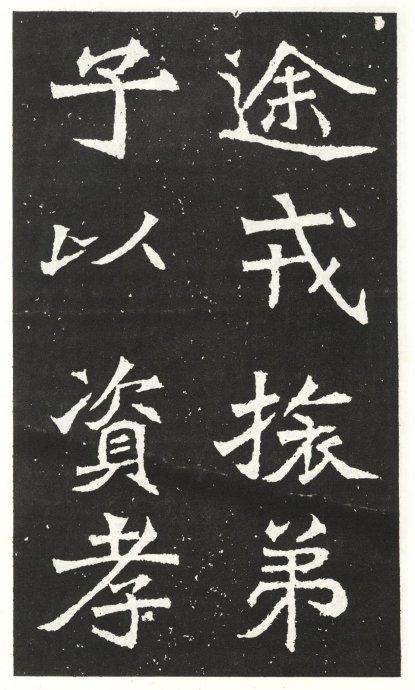 途戎旅弟
子以資孝